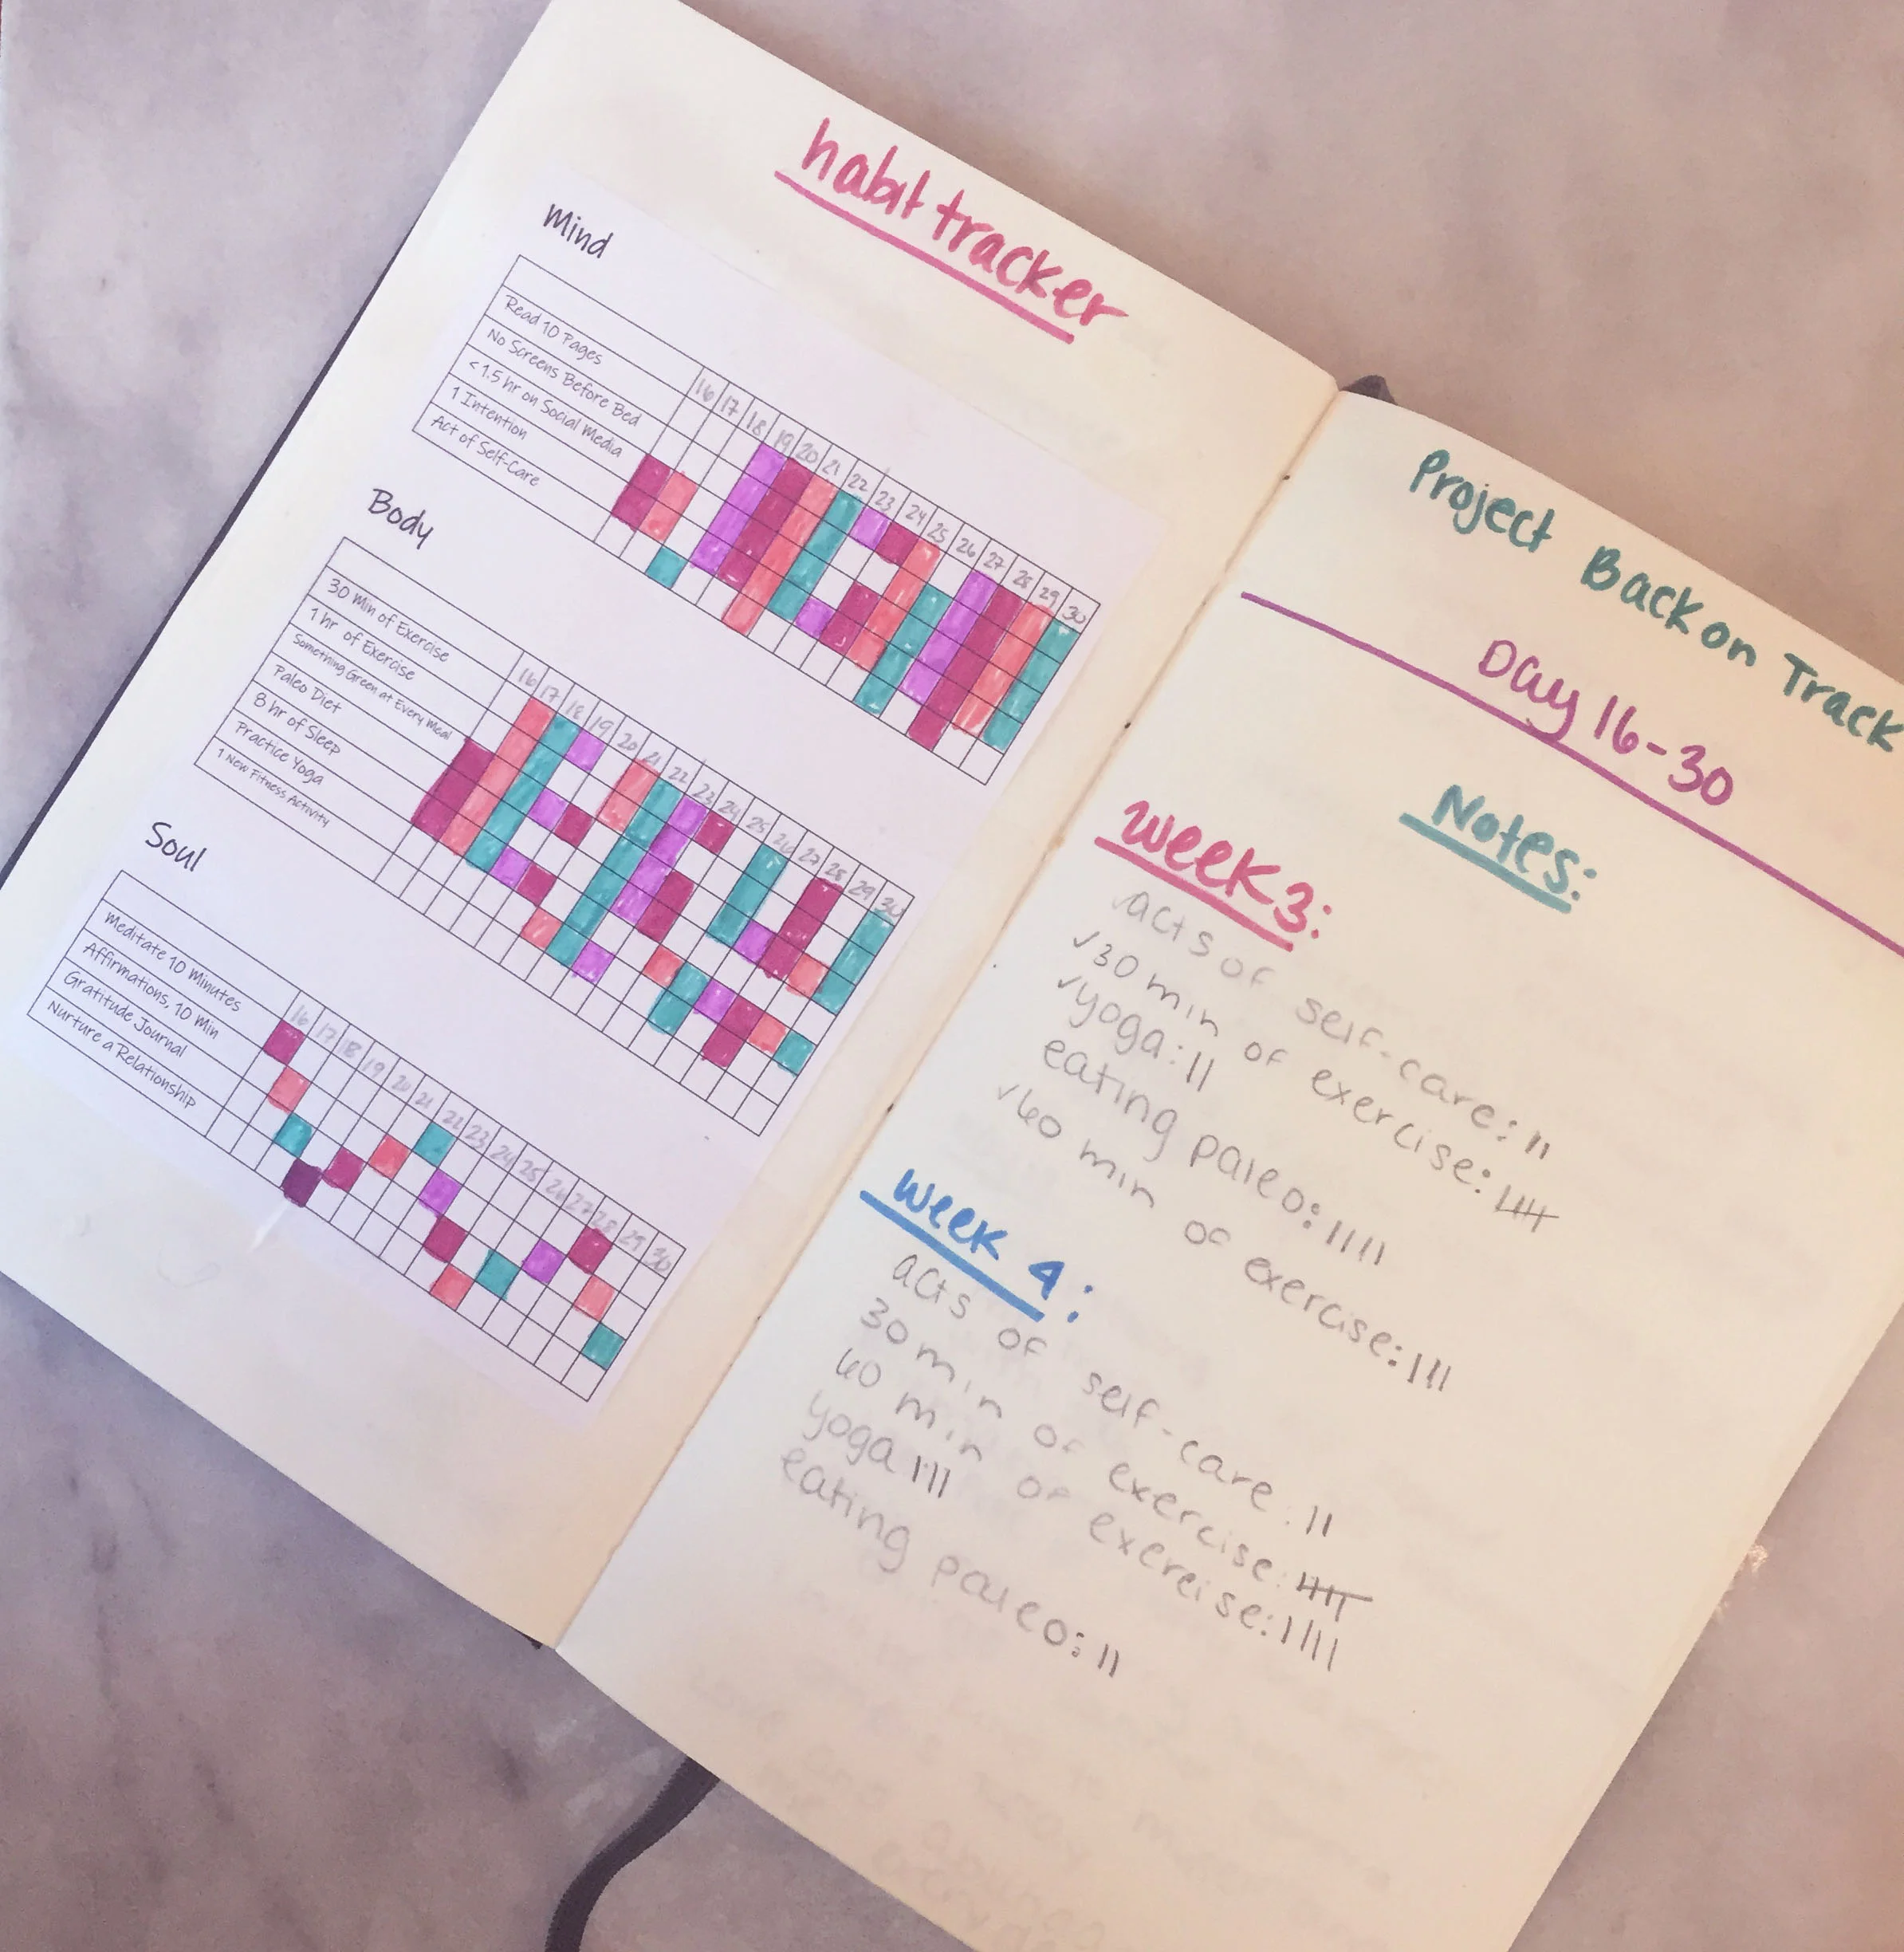 habit tracker
Mind
16 17 18 19 20 21 22 23 24 25 26 27 28 29 30
Read 10 Pages
No Screens Before Bed
< 1.5 hr on Social Media
1 Intention
Act of Self-Care
Body
16 17 18 19 20 21 22 23 24 25 26 27 28 29 30
30 Min of Exercise
1 hr of Exercise
Something Green at Every Meal
Paleo Diet
8 hr of Sleep
Practice Yoga
1 New Fitness Activity
Soul
16 17 18 19 20 21 22 23 24 25 26 27 28 29 30
Meditate 10 Minutes
Affirmations, 10 Min
Gratitude Journal
Nurture a Relationship
Project Back on Track
Day 16-30
Notes:
Week 3:
✓acts of self-care: II
✓30 min of exercise: IIII
✓yoga: II
eating paleo: IIII
✓60 min of exercise: III
Week 4:
acts of self-care: II
30 min of exercise: IIII
60 min of exercise: IIII
yoga IIII
eating paleo: II